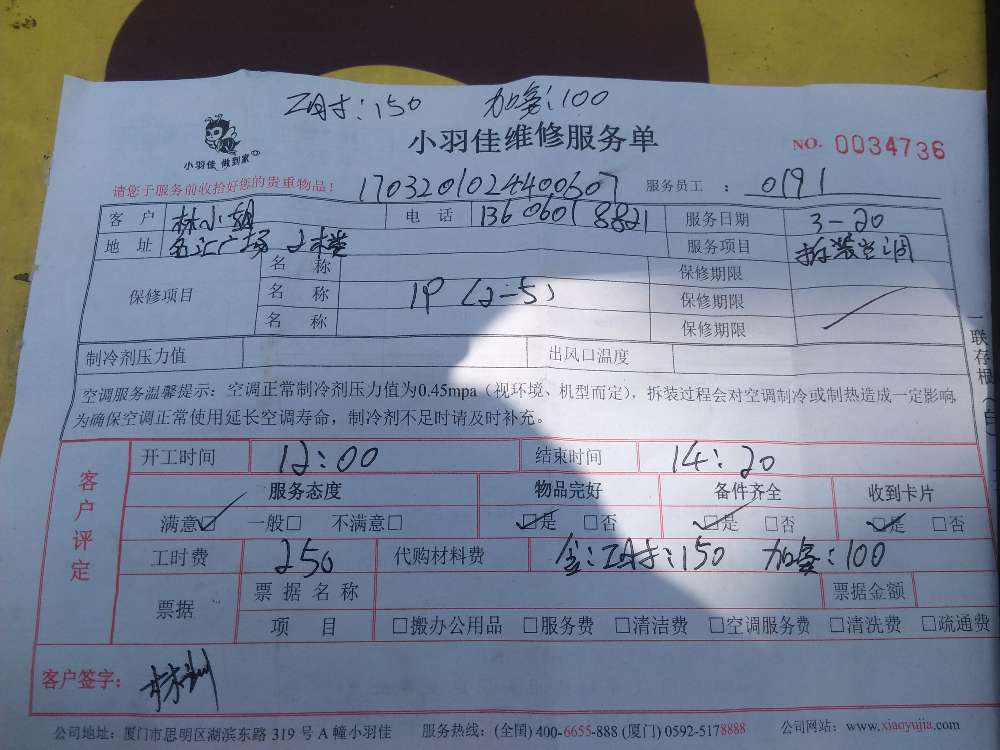 工时:150 加氨:100
小羽佳 做到家
小羽佳维修服务单
NO. 0034736
请您于服务前收拾好您的贵重物品！
1703201024400607 服务员工 : 0191
客 户 林小姐 电 话 13606018821 服务日期 3-20
地 址 名汇广场 2楼 服务项目 拆装空调
保修项目
名 称 保修期限
名 称 1P (2-5) 保修期限
名 称 保修期限
制冷剂压力值 出风口温度
空调服务温馨提示：空调正常制冷剂压力值为0.45mpa（视环境、机型而定），拆装过程会对空调制冷或制热造成一定影响
为确保空调正常使用延长空调寿命，制冷剂不足时请及时补充。
一联存根（白）
客户评定
开工时间 12:00 结束时间 14:20
服务态度 物品完好 备件齐全 收到卡片
满意☑ 一般□ 不满意□ ☑是 □否 ☑是 □否 ☑是 □否
工时费 250 代购材料费 :工时:150 加氨:100
票据 票 据 名 称 票据金额
项 目 □搬办公用品 □服务费 □清洁费 □空调服务费 □清洗费 □疏通费
客户签字： 林
公司地址: 厦门市思明区湖滨东路 319 号 A 幢小羽佳 服务热线: (全国) 400-6655-888 (厦门) 0592-5178888 公司网站: www.xiaoyujia.com